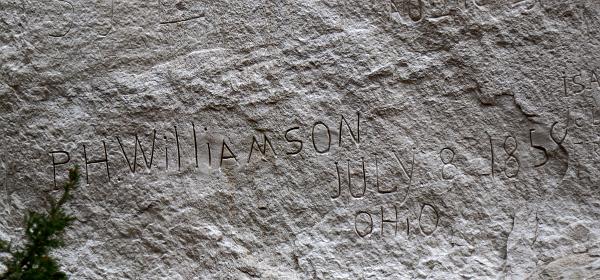 PHWilliAmSON
JULY 8 1858
OHiO
iSA